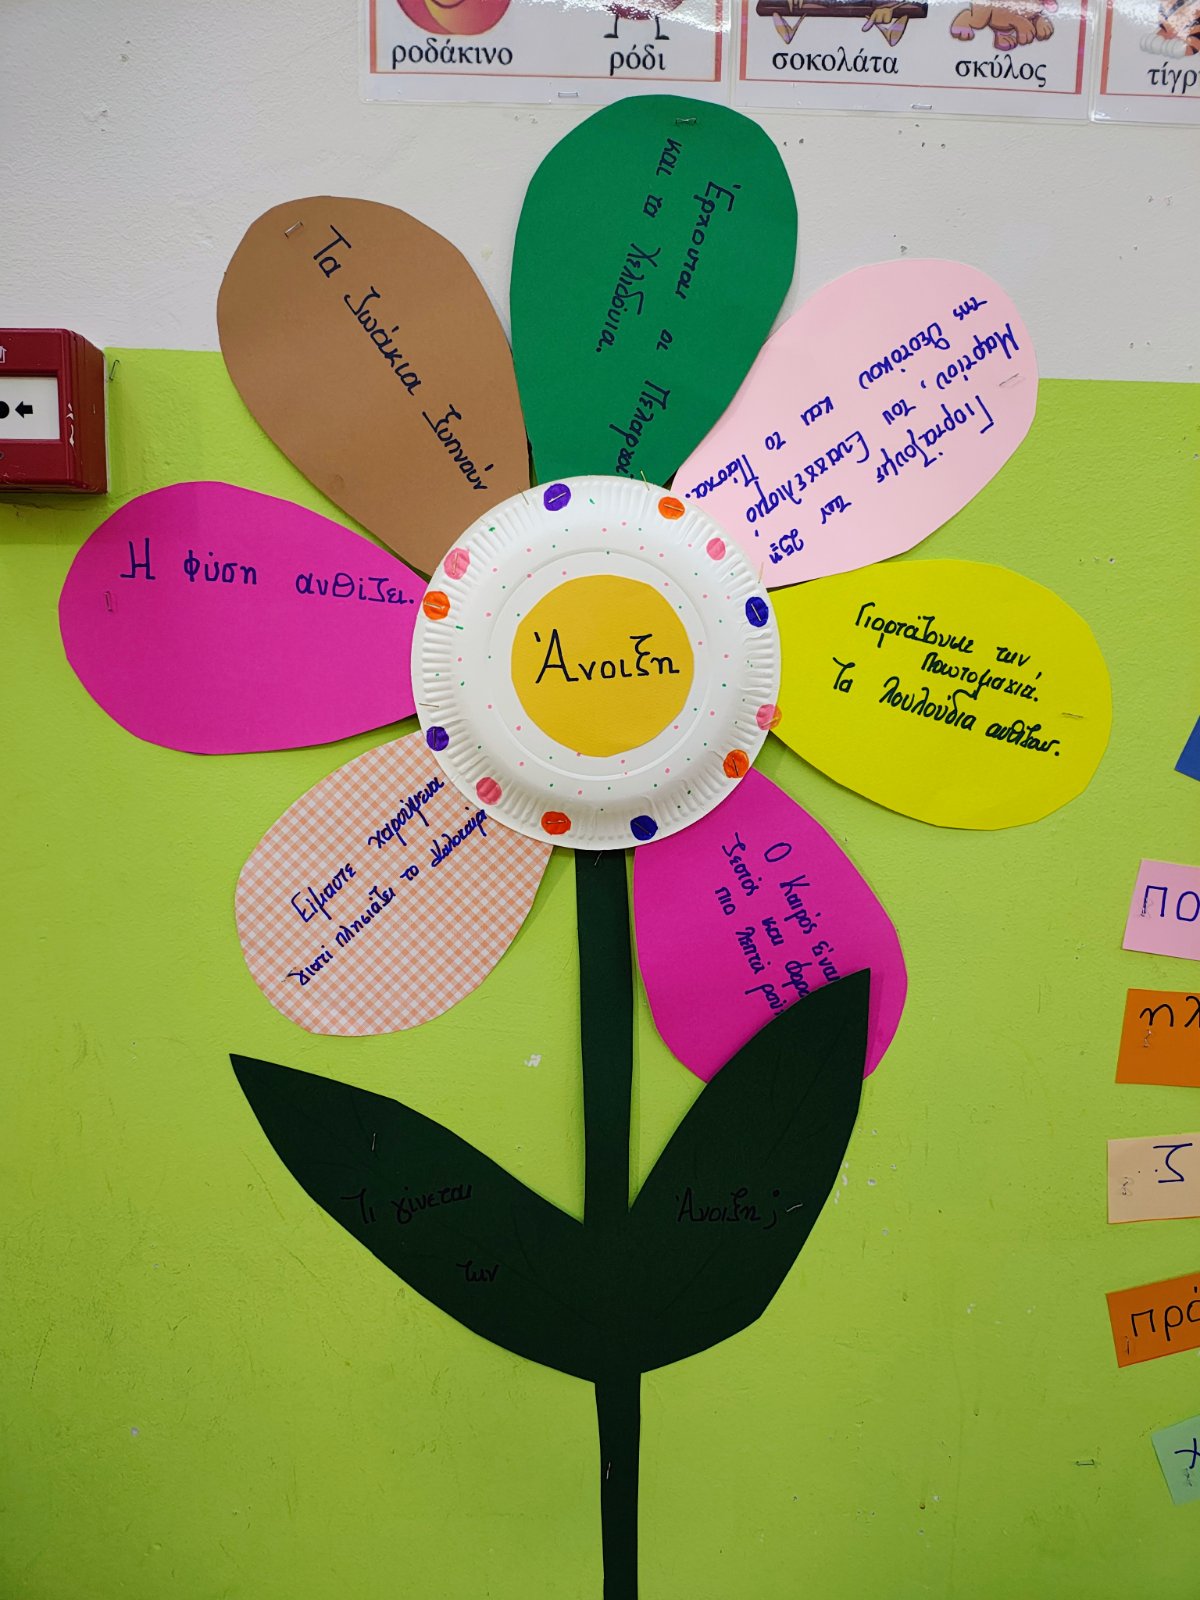 ροδάκινο
ρόδι
σοκολάτα
σκύλος
τίγρ
Άνοιξη
Τα ζωάκια ξυπνούν
Έρχονται οι πελαργοί
και τα χελιδόνια.
Γιορτάζουμε την 25η
Μαρτίου, τον Ευαγγελισμό
της Θεοτόκου και το Πάσχα.
Γιορτάζουμε την
Πρωτομαγιά.
Τα λουλούδια ανθίζουν.
Ο καιρός είναι
ζεστός και φορά
πιο λεπτά ρού
Είμαστε χαρούμενα
γιατί πλησιάζει το καλοκαίρι
Η φύση ανθίζει.
Τι γίνεται
την
Άνοιξη;
πο
ηλ
ζ
πρό
χ